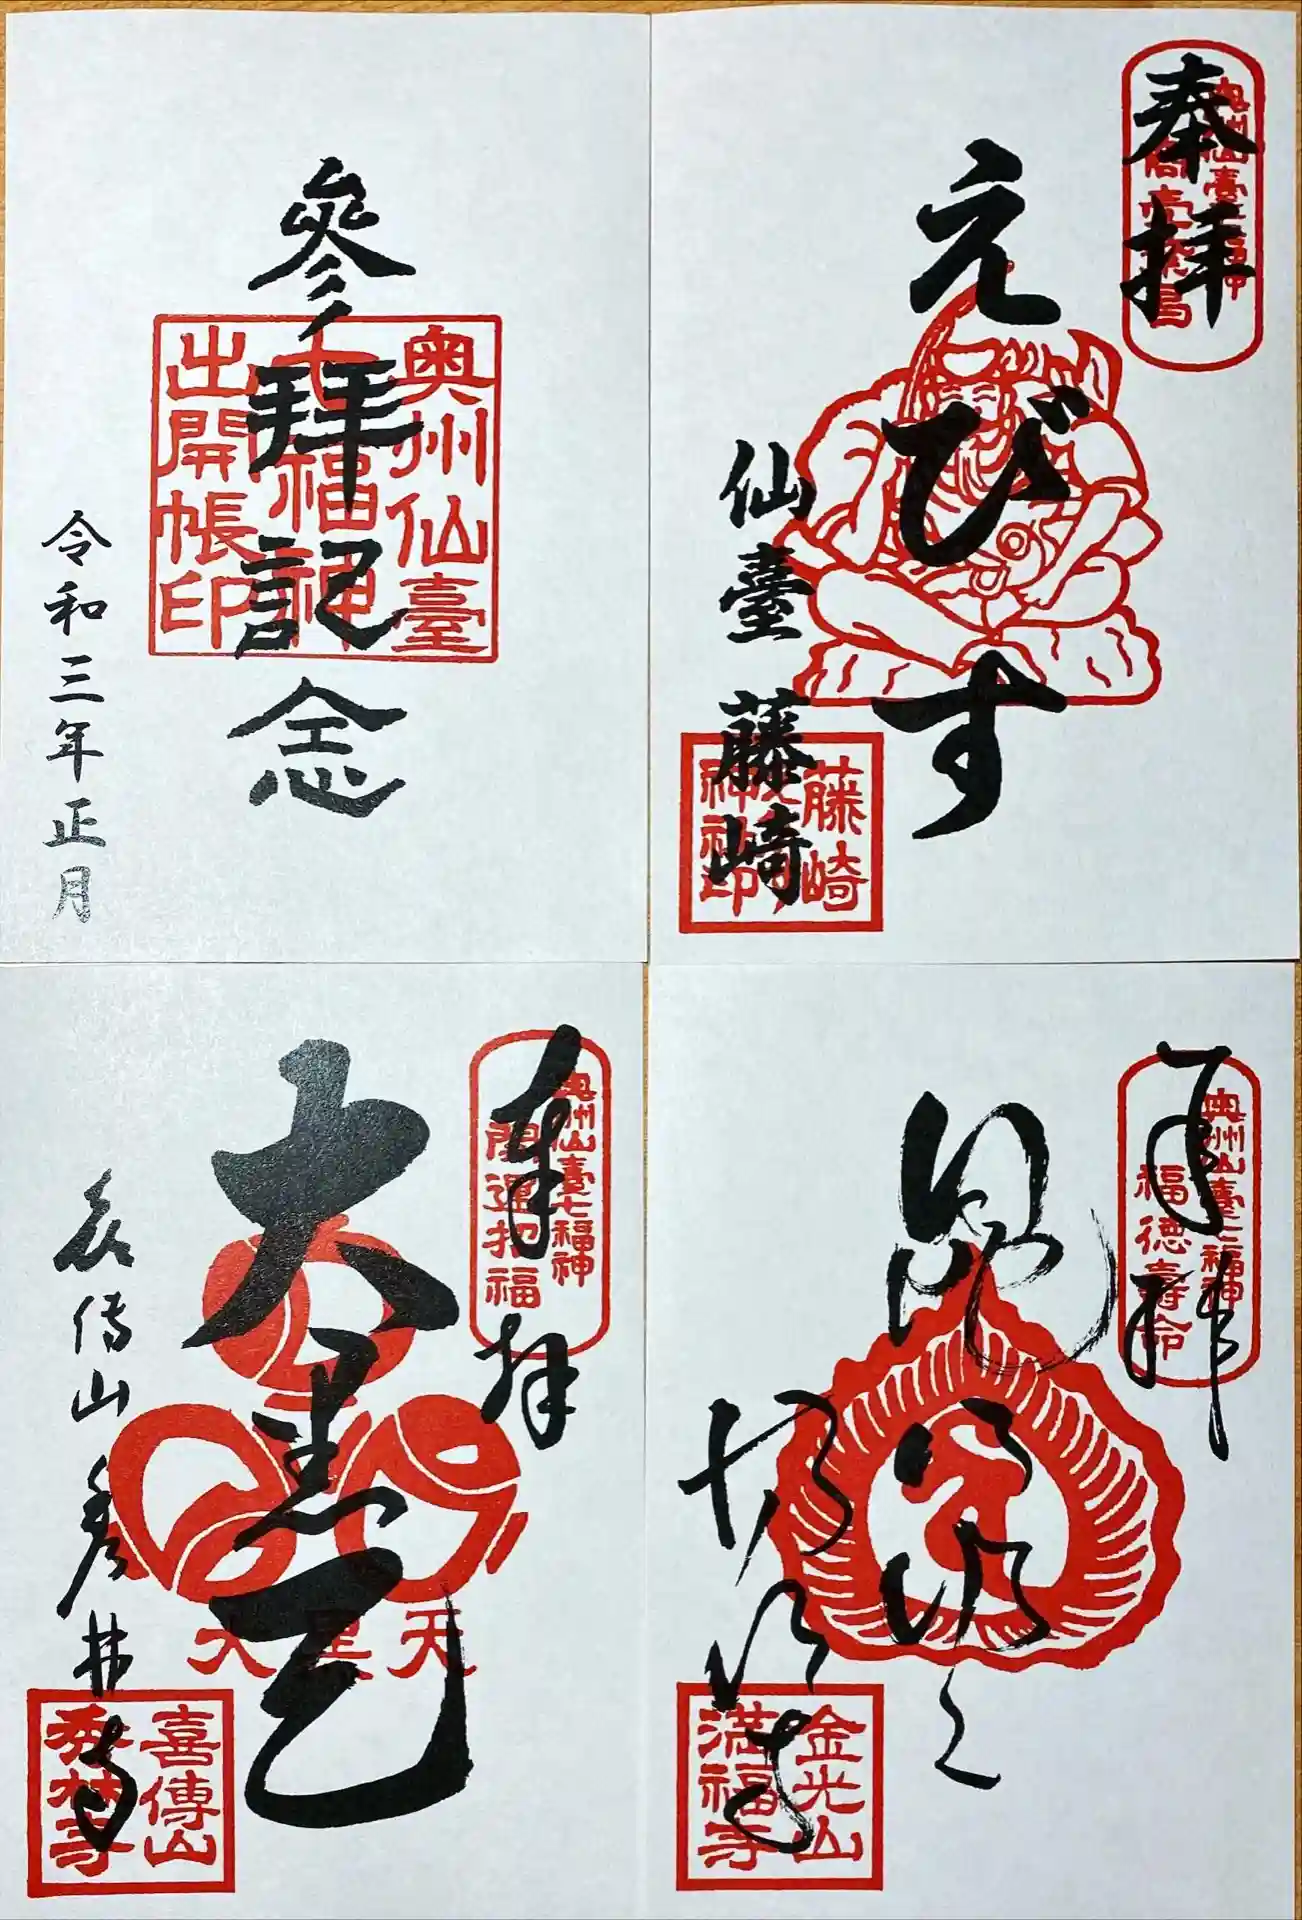 參拜記念
奥州仙臺
七福神
出開帳印
令和三年正月
奉拝
奥州仙臺七福神
商売繁昌
えびす
仙臺 藤崎
藤崎
奉拝
奥州仙臺七福神
開運招福
大黒天
大黒天
喜傳山 秀林寺
喜傳山
秀林寺
奉拝
奥州仙臺七福神
福徳壽命
満福寺
金光山
満福寺